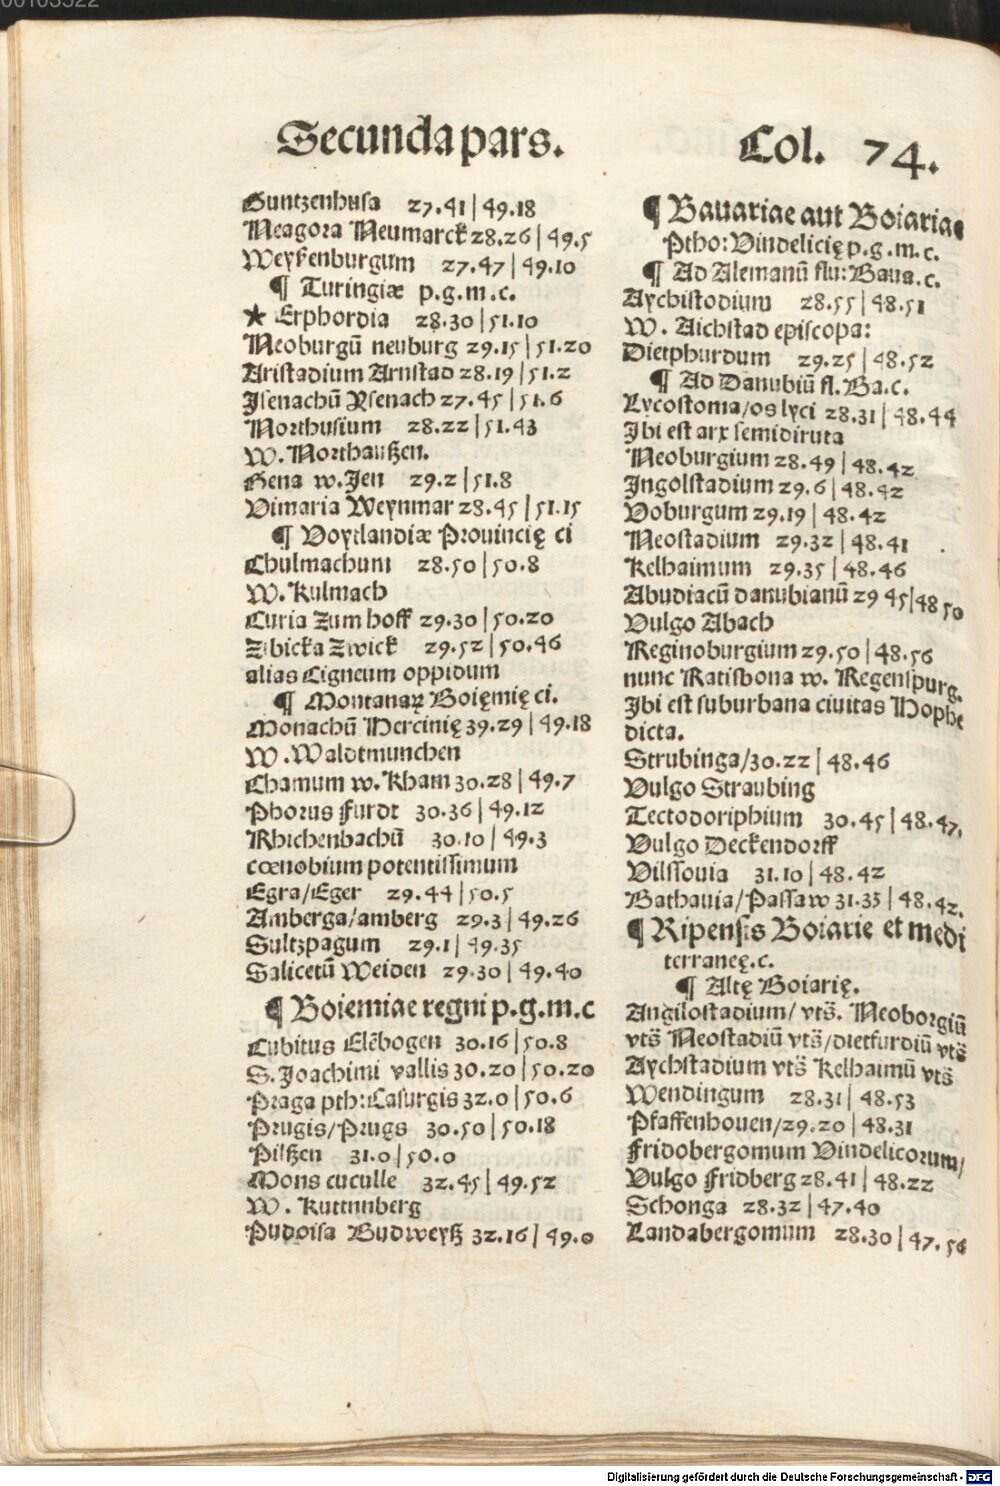 Secunda pars.
Col. 74.
Guntzenhusa 27.41 | 49.18
Neagora Neumarck 28.26 | 49.5
Weyssenburgum 27.47 | 49.10
¶ Turingiæ p.g.m.c.
★ Erphordia 28.30 | 51.10
Neoburgū neuburg 29.15 | 51.20
Aristadium Arnstad 28.19 | 51.2
Isenachū Ysenach 27.45 | 51.6
Northusium 28.22 | 51.43
W. Northaußen.
Gena w. Jen 29.2 | 51.8
Vimaria Weynmar 28.45 | 51.15
¶ Voytlandiæ Prouincię ci
Chulmachum 28.50 | 50.8
W. Kulmach
Curia zum hoff 29.30 | 50.20
Zbicka Zwick 29.52 | 50.46
alias Cigneum oppidum
¶ Montanaꝝ Boięmię ci.
Monachū Hercinię 39.29 | 49.18
W. Waldtmunchen
Chamum w. Kham 30.28 | 49.7
Phorus Furdt 30.36 | 49.12
Rhichenbachū 30.10 | 49.3
cœnobium potentissimum
Egra/Eger 29.44 | 50.5
Amberga/amberg 29.3 | 49.26
Sultzpagum 29.1 | 49.35
Salicetū Weiden 29.30 | 49.40
¶ Boiemiae regni p.g.m.c
Cubitus Elēbogen 30.16 | 50.8
S. Joachimi vallis 30.20 | 50.20
Praga pth: Casurgis 32.0 | 50.6
Prugis/Prugs 30.50 | 50.18
Pilßen 31.0 | 50.0
Mons cuculle 32.45 | 49.52
W. Kuttnnberg
Pudoisa Budweyß 32.16 | 49.0
¶ Bauariae aut Boiariae
Ptho: Vindelicię p.g.m.c.
¶ Ad Alemanū flu: Baua.c.
Aychistodium 28.55 | 48.51
W. Aichstad episcopa:
Dietphurdum 29.25 | 48.52
¶ Ad Danubiū fl. Ba.c.
Lycostoma/os lyci 28.31 | 48.44
Ibi est arx semidiruta
Neoburgium 28.49 | 48.42
Ingolstadium 29.6 | 48.42
Voburgum 29.19 | 48.42
Neostadium 29.32 | 48.41
Kelhaimum 29.35 | 48.46
Abudiacū danubianū 29 45 | 48 50
Vulgo Abach
Reginoburgium 29.50 | 48.56
nunc Ratisbona w. Regenspurg.
Ibi est suburbana ciuitas Hophe
dicta.
Strubinga/30.22 | 48.46
Vulgo Straubing
Tectodoriphium 30.45 | 48.47.
Vulgo Deckendorff
Vilssouia 31.10 | 48.42
Bathauia/Passaw 31.33 | 48.42.
¶ Ripensis Boiarie et medi
terraneę.c.
¶ Altę Boiarię.
Angilostadium/ vts̄. Neoborgiū
vts̄ Neostadiū vts̄/dietfurdiū vts̄
Aychstadium vts̄ Kelhaimū vts̄
Wendingum 28.31 | 48.53
Pfaffenhouen/29.20 | 48.31
Fridobergomum Vindelicorum/
Vulgo Fridberg 28.41 | 48.22
Schonga 28.32 | 47.40
Landabergomum 28.30 | 47.56
Digitalisierung gefördert durch die Deutsche Forschungsgemeinschaft - DFG